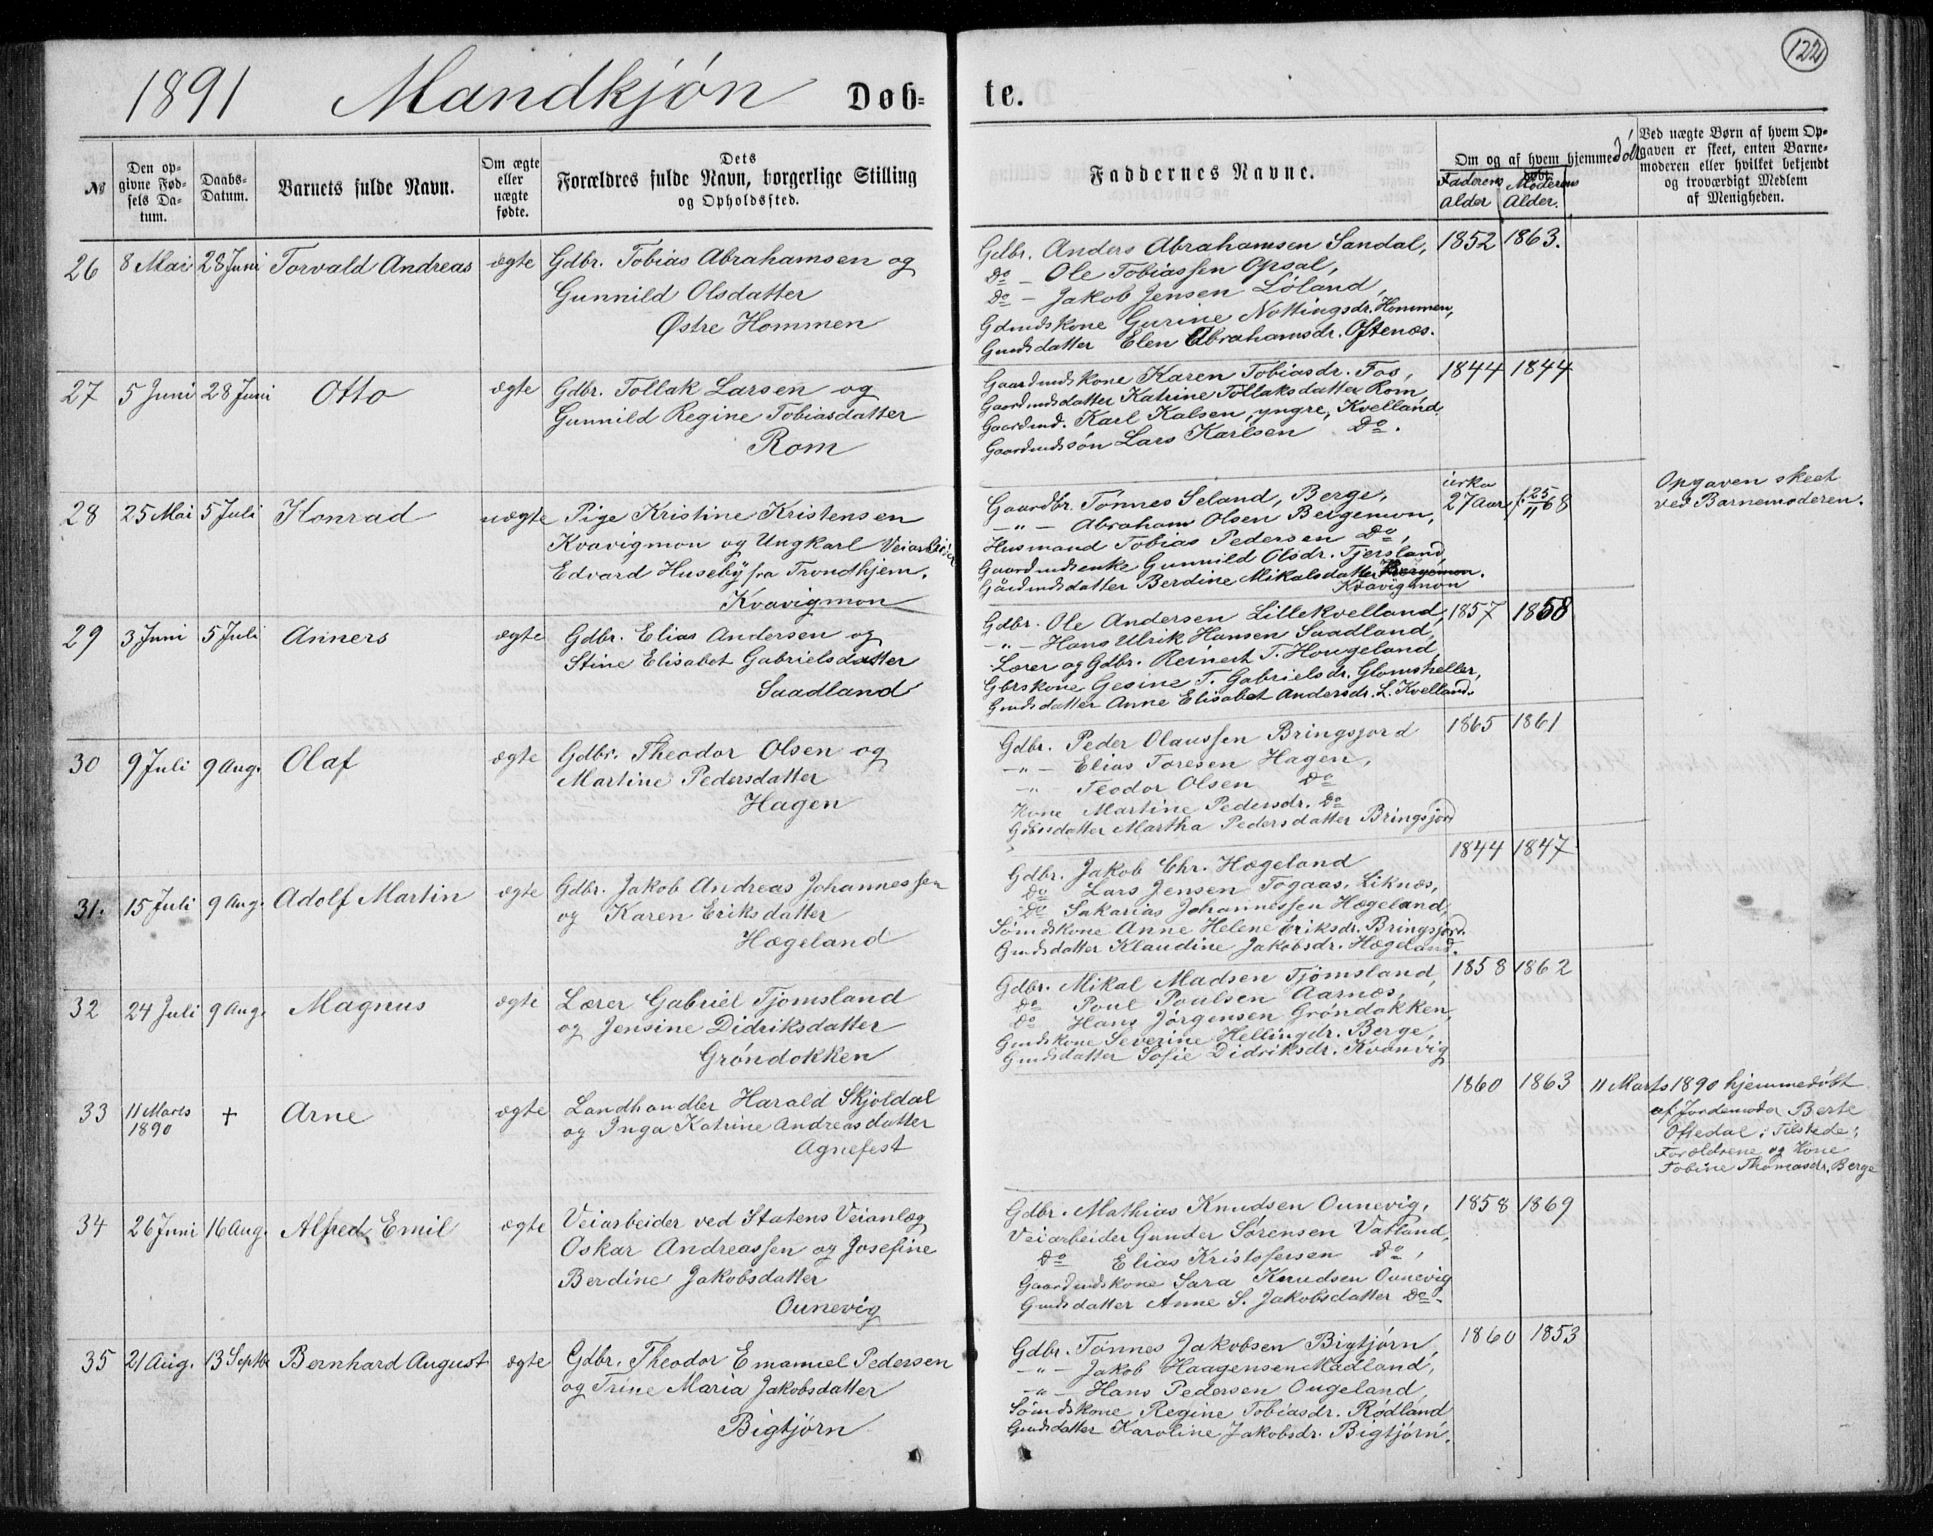 1891 Mandkjøn Døb=
te. 122
№ Den opgivne Fødsels Datum. Daabs-Datum. Barnets fulde Navn. Om ægte eller uægte fødte. Dets Forældres fulde Navn, borgerlige Stilling og Opholdssted.
Faddernes Navne. Om og af hvem hjemmedøbt Faderens Alder Moderens Alder. Ved uægte Børn af hvem Opgaven er skeet, enten Barnemoderen eller hvilket bekjendt og troværdigt Medlem af Menigheden.
26 8 Mai 28 Juni Torvald Andreas ægte Gdbr. Tobias Abrahamsen og
Gunnild Olsdatter
Østre Hommen
Gdbr. Anders Abrahamsen Sandal, 1852 1863.
Do – Ole Tobiassen Opsal,
Do – Jakob Jensen Løland,
Gdmdskone Gurine Nottingsdr. Hommen,
Gmdsdatter Elen Abrahamsdr. Oftenæs.
27 5 Juni 28 Juni Otto ægte Gdbr. Tollak Larsen og
Gunnild Regine Tobiasdatter
Rom
Gaardmdskone Karen Tobiasdr. Fos, 1844 1844
Gaardmdsdatter Katrine Tollaksdatter Rom,
Gaardmd. Karl Kalsen, yngre, Kvelland,
Gaardmdssøn Lars Karlsen Do.
28 25 Mai 5 Juli Konrad uægte Pige Kristine Kristensen
Kvavigmon og Ungkarl Veiarbeider
Edvard Huseby fra Trondhjem.
Kvavigmon
Gaardbr. Tønnes Seland, Berge, cirka 27 Aar f. 25/11 68 Opgaven skeet
– " – Abraham Olsen Bergemon, ved Barnemoderen.
Husmand Tobias Pedersen Do,
Gaardmdsenke Gunnild Olsdr. Tjersland,
Gaardmdsdatter Berdine Mikalsdatter Bergemon.
Kvavigmon
29 3 Juni 5 Juli Anners ægte Gdbr. Elias Andersen og
Stine Elisabet Gabrielsdatter
Saadland
Gdbr. Ole Andersen Lillekvelland, 1857 1858
– " – Hans Ulrik Hansen Saadland,
Lærer og Gdbr. Reinert T. Hougeland,
Gbrskone Gesine T. Gabrielsdr. Glomsheller,
Gmdsdatter Anne Elisabet Andersdr. L. Kvelland.
30 9 Juli 9 Aug. Olaf ægte Gdbr. Theodor Olsen og
Martine Pedersdatter
Hagen
Gdbr. Peder Olaussen Bringsjord 1865 1861
– " – Elias Toresen Hagen,
– " – Teodor Olsen Do
Kone Martine Pedersdr. Do
Gdbrsdatter Martha Pedersdatter Bringsjord
31. 15 Juli 9 Aug. Adolf Martin ægte Gdbr. Jakob Andreas Johannessen
og Karen Eriksdatter
Hægeland
Gdbr. Jakob Chr. Hægeland 1844 1847
Do Lars Jensen Togaas, Liknæs,
Do Sakarias Johannessen Hægeland,
Sømdskone Anne Helene Eriksdr. Bringsjord.
Gmdsdatter Klaudine Jakobsdr. Hægeland.
32 24 Juli 9 Aug. Magnus ægte Lærer Gabriel Tjomsland
og Jensine Didriksdatter
Grøndokken
Gdbr. Mikal Madsen Tjømsland, 1858 1862
Do Poul Poulsen Aarnæs,
Do Hans Jørgensen Grøndokken,
Gmdskone Severine Hellingdr. Berge,
Gmdsdatter Sofie Didriksdr. Kvanvig
33 11 Marts 1890 † Arne ægte Landhandler Harald Skjoldal
og Inga Katrine Andreasdatter
Agnefest
1860 1863 11 Marts 1890 hjemmedøbt
af Jordemoder Berte
Oftedal; Tilstede:
Forældrene og Kone
Tobine Thomasdr. Berge
34 26 Juni 16 Aug. Alfred Emil ægte Veiarbeider ved Statens Veianlæg
Oskar Andreassen og Josefine
Berdine Jakobsdatter
Ounevig
Gdbr. Mathias Knudsen Ounevig, 1858 1869
Veiarbeider Gunder Sørensen Vatland,
Do Elias Kristofersen Do,
Gaardmdskone Sara Knudsen Ounevig
Gmdsdatter Anne S. Jakobsdatter Do
35 21 Aug. 13 Septbr Bernhard August ægte Gdbr. Theodor Emanuel Pedersen
og Trine Maria Jakobsdatter
Bigtjørn
Gdbr. Tønnes Jakobsen Bigtjørn, 1860 1853
– " – Jakob Haagensen Madland,
– " – Hans Pedersen Ougeland,
Sømdskone Regine Tobiasdr. Rødland
Gmdsdatter Karoline Jakobsdr. Bigtjørn.